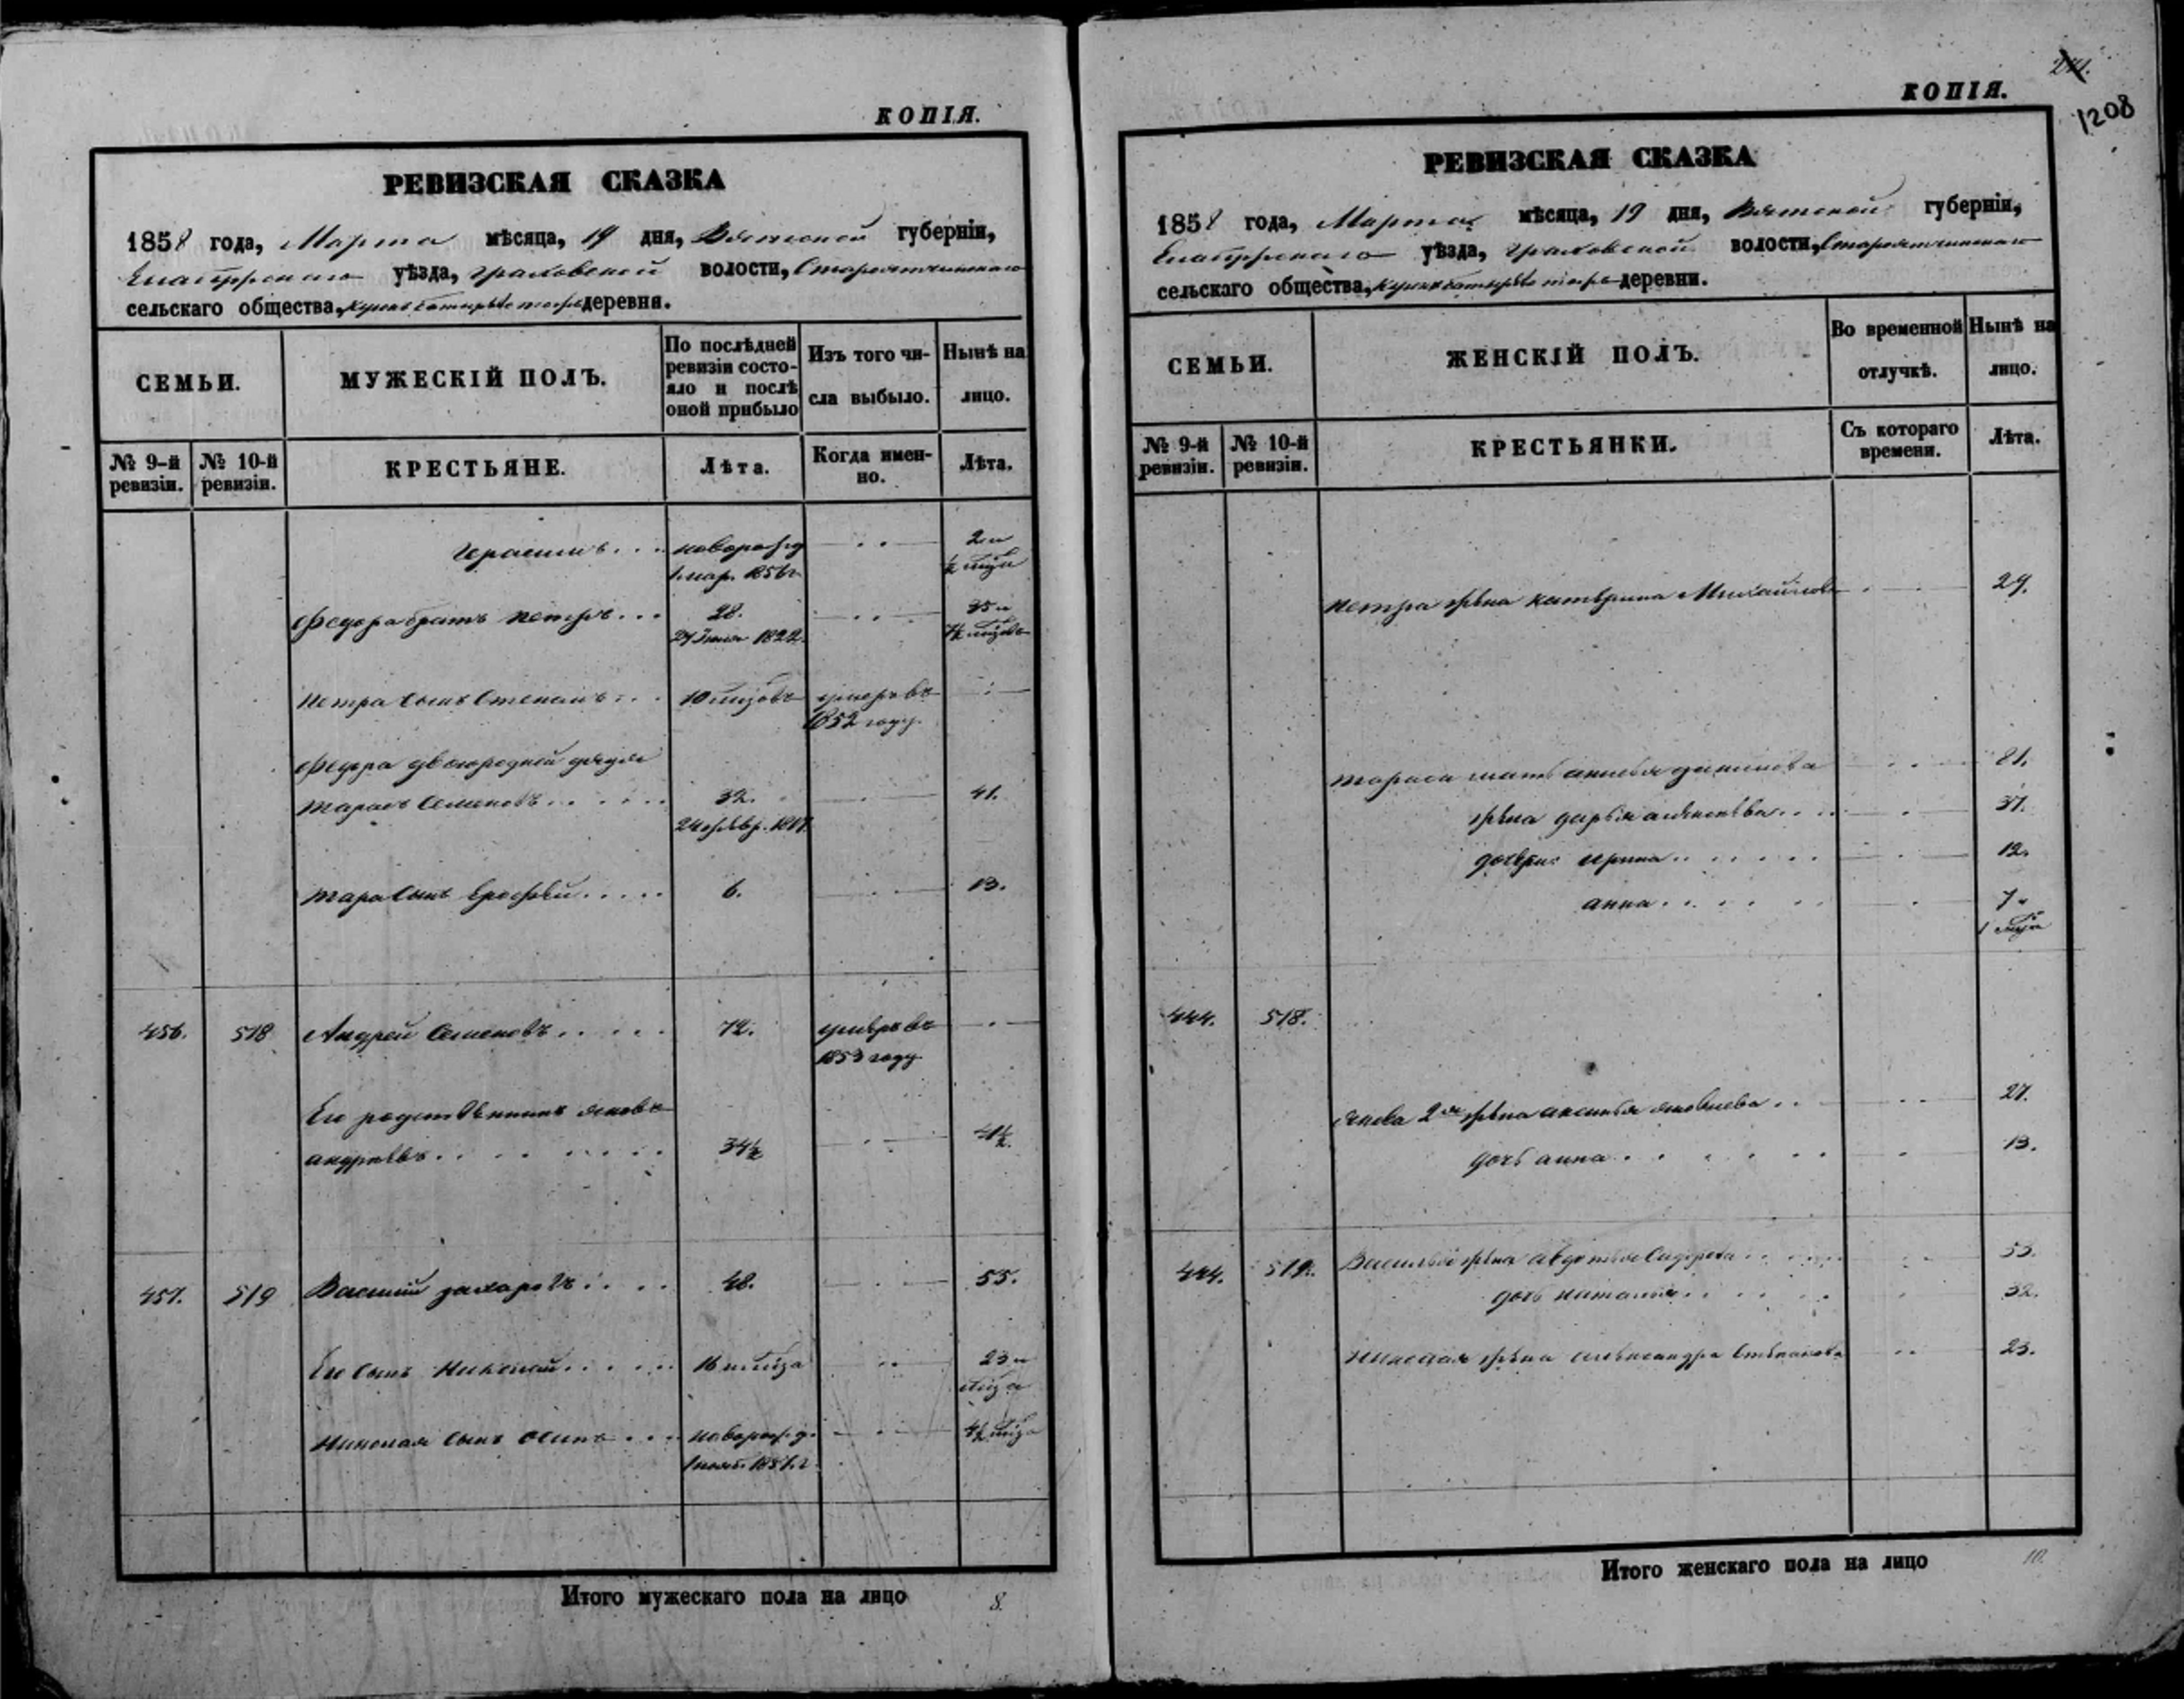 КОПІЯ.
РЕВИЗСКАЯ СКАЗКА
1858 года, Марта мѣсяца, 19 дня, Вятской губерніи,
Елабужскаго уѣзда, Граховской волости,
сельскаго общества, деревня.
СЕМЬИ.
МУЖЕСКІЙ ПОЛЪ.
По послѣдней
ревизіи состо-
яло и послѣ
оной прибыло
Изъ того чи-
сла выбыло.
Нынѣ на
лицо.
№ 9-й
ревизіи.
№ 10-й
ревизіи.
КРЕСТЬЯНЕ.
Лѣта.
Когда имен-
но.
Лѣта.
новорожд 2 и
1856 г
Федора братъ Петръ . . . 28. 35 и
1822.
Петра сынъ Степанъ . . . 10 умеръ въ
1852 году
Федора двоюродной дядя
Тарасъ Семеновъ . . . . . 32. 41.
24 февр.
Тараса сынъ Ерофей . . . . . 6. 13.
456. 518 Андрей Семеновъ . . . . . 72. умеръ въ
1853 году
Его родственникъ Яковъ
Андреевъ . . . . . . . 34½ 41½.
457. 519 Василій Захаровъ . . . . 48. 55.
Его сынъ Николай . . . . . 16 23 и
Николая сынъ Осипъ . . . новорожд. 4½
1857 г.
Итого мужескаго пола на лицо 8.
КОПІЯ.
1208
РЕВИЗСКАЯ СКАЗКА
1858 года, Марта мѣсяца, 19 дня, Вятской губерніи,
Елабужскаго уѣзда, Граховской волости,
сельскаго общества, деревни.
СЕМЬИ.
ЖЕНСКІЙ ПОЛЪ.
Во временной
отлучкѣ.
Нынѣ на
лицо.
№ 9-й
ревизіи.
№ 10-й
ревизіи.
КРЕСТЬЯНКИ.
Съ котораго
времени.
Лѣта.
Петра жена Катерина Михайлова 29.
Тараса мать 81.
жена Дарья 37.
дочери: Ирина . . . . . . 12.
Анна . . . . . 7 и
444. 518.
Якова 2я жена Аксинья Яковлева . . 27.
дочь Анна . . . . . . 13.
444. 519. Василья жена Авдотья Сидорова . . . 53.
дочь Наталья . . . . . 32.
Николая жена Александра Степанова 23.
Итого женскаго пола на лицо 10.